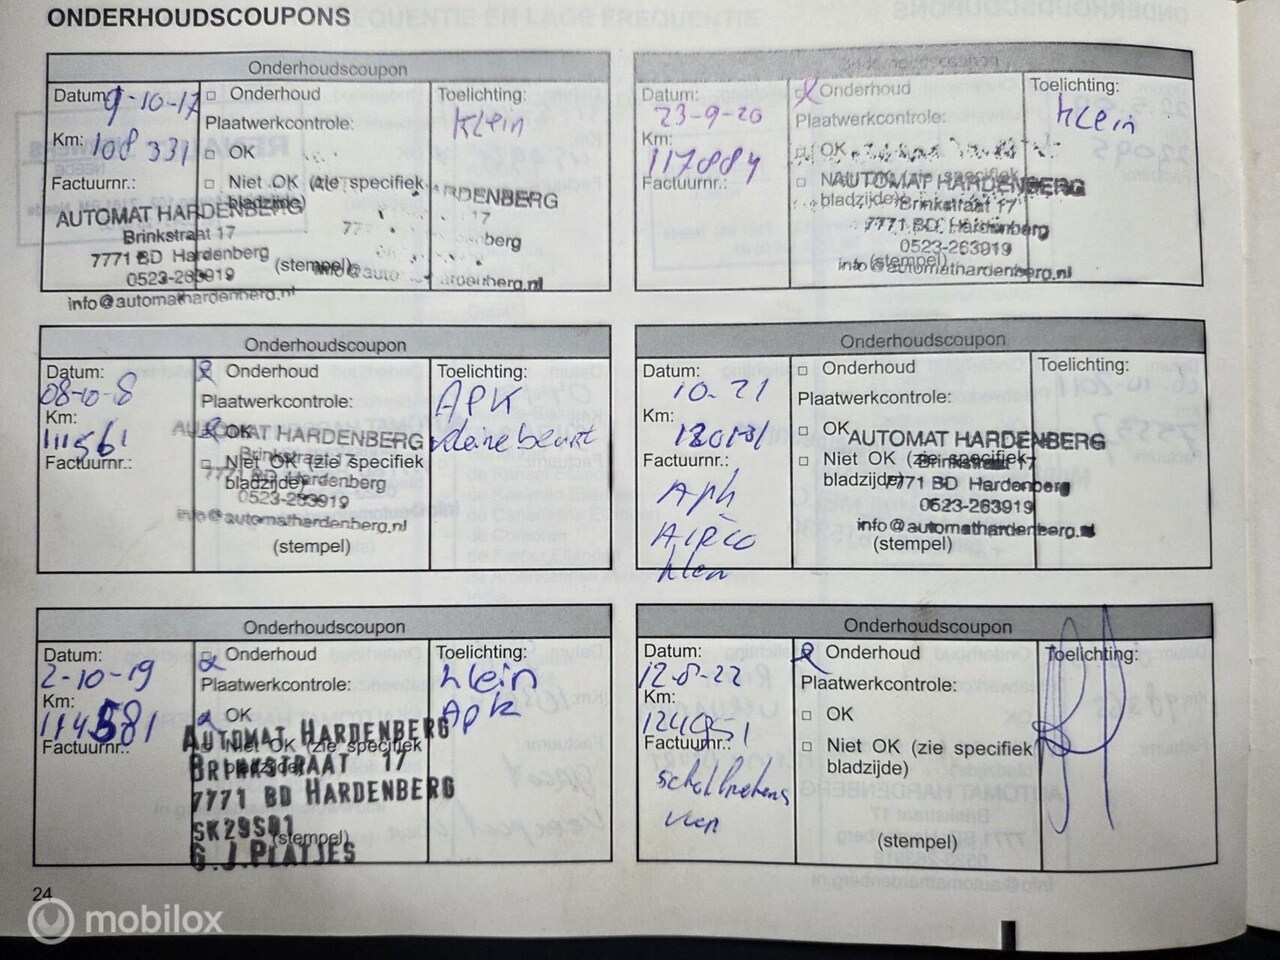 ONDERHOUDSCOUPONS
Onderhoudscoupon
Datum: 9-10-17
Km: 108 331
Factuurnr.:
□ Onderhoud
Plaatwerkcontrole:
□ OK
□ Niet OK (zie specifiek
bladzijde)
(stempel)
Toelichting:
Klein
AUTOMAT HARDENBERG
Brinkstraat 17
7771 BD Hardenberg
0523-263919
info@automathardenberg.nl
Onderhoudscoupon
Datum: 23-9-20
Km: 117884
Factuurnr.:
Onderhoud
Plaatwerkcontrole:
□ OK
□ Niet OK (zie specifiek
bladzijde)
(stempel)
Toelichting:
Klein
AUTOMAT HARDENBERG
Brinkstraat 17
7771 BD Hardenberg
0523-263919
info@automathardenberg.nl
Onderhoudscoupon
Datum:
08-10-18
Km:
111561
Factuurnr.:
Onderhoud
Plaatwerkcontrole:
OK
□ Niet OK (zie specifiek
bladzijde)
(stempel)
Toelichting:
APK
kleine beurt
AUTOMAT HARDENBERG
Brinkstraat 17
7771 BD Hardenberg
0523-263919
info@automathardenberg.nl
Onderhoudscoupon
Datum:
10-21
Km:
Factuurnr.:
Apk
Airco
klein
□ Onderhoud
Plaatwerkcontrole:
□ OK
□ Niet OK (zie specifiek
bladzijde)
(stempel)
Toelichting:
AUTOMAT HARDENBERG
Brinkstraat 17
7771 BD Hardenberg
0523-263919
info@automathardenberg.nl
Onderhoudscoupon
Datum:
2-10-19
Km:
114581
Factuurnr.:
Onderhoud
Plaatwerkcontrole:
OK
Niet OK (zie specifiek
bladzijde)
(stempel)
Toelichting:
Klein
Apk
AUTOMAT HARDENBERG
BRINKSTRAAT 17
7771 BD HARDENBERG
SK29S01
G.J.PLATJES
Onderhoudscoupon
Datum:
12-8-22
Km:
Factuurnr.:
Onderhoud
Plaatwerkcontrole:
□ OK
□ Niet OK (zie specifiek
bladzijde)
(stempel)
Toelichting:
24
mobilox